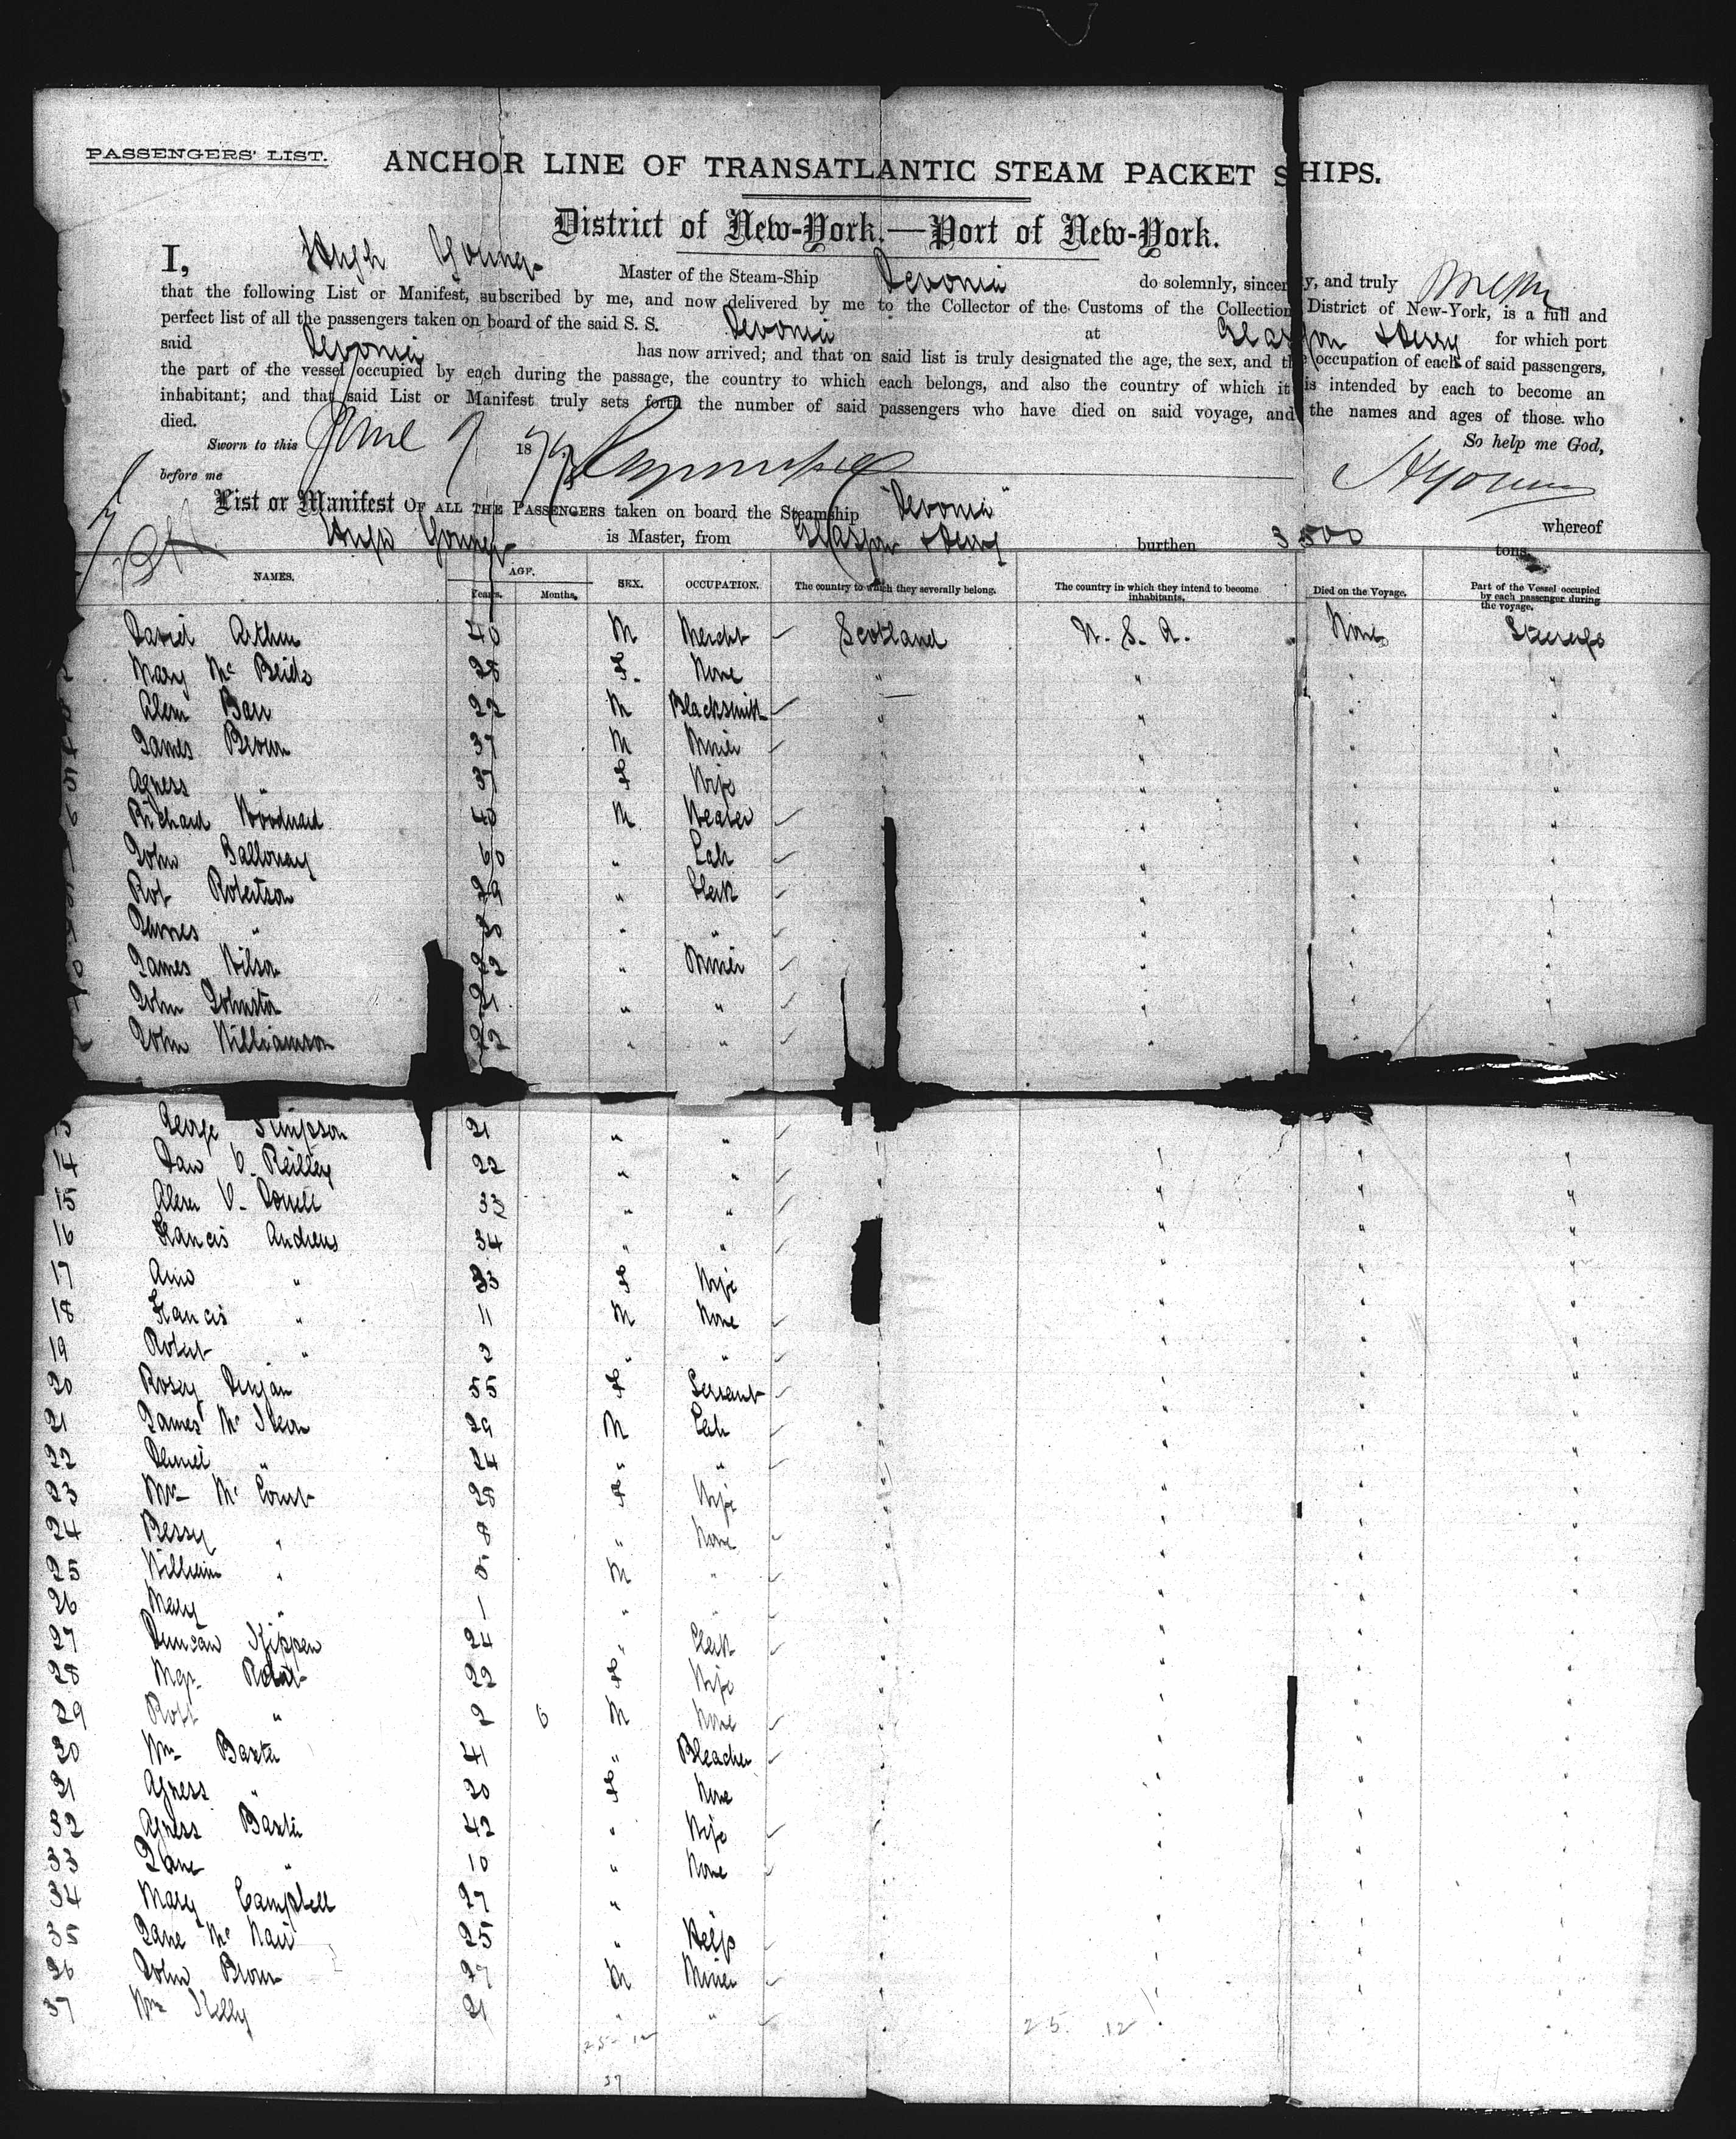 PASSENGERS' LIST.
ANCHOR LINE OF TRANSATLANTIC STEAM PACKET SHIPS.
District of New-York.—Port of New-York.
I, Hugh Young Master of the Steam-Ship Devonia do solemnly, sincerely, and truly
that the following List or Manifest, subscribed by me, and now delivered by me to the Collector of the Customs of the Collection District of New-York, is a full and
perfect list of all the passengers taken on board of the said S. S. Devonia at Glasgow & Derry for which port
said Devonia has now arrived; and that on said list is truly designated the age, the sex, and the occupation of each of said passengers,
the part of the vessel occupied by each during the passage, the country to which each belongs, and also the country of which it is intended by each to become an
inhabitant; and that said List or Manifest truly sets forth the number of said passengers who have died on said voyage, and the names and ages of those who
died.
So help me God,
Sworn to this June 7 187
before me
H Young
List or Manifest OF ALL THE PASSENGERS taken on board the Steamship "Devonia" whereof
Hugh Young is Master, from Glasgow & Derry burthen 3500 tons.
NAMES. AGE. SEX. OCCUPATION. The country to which they severally belong. The country in which they intend to become inhabitants. Died on the Voyage. Part of the Vessel occupied by each passenger during the voyage.
Years. Months.
David Arthur 40 M Mercht Scotland U. S. A. None Steerage
Mary Mc 28 F. None " " " "
Alexr Barr 22 M Blacksmith " " " "
4 James Brown 37 M Miner " " "
5 Agness " 37 F Wife " " "
6 Richard Woodward 40 M Weaver " " "
John 60 " Lab " " "
Rot Robertson 29 " Clerk " " "
James " 30 " " " " "
James Wilson 22 " Miner " " "
John Johnston " " " " "
John Williamson 22 " " " " "
13 George Simpson 21 " "
14 22 " " " " " "
15 Alexr 33 " " " " " "
16 Francis Andrews 34 " " " " "
17 " 33 F Wife " " "
18 Francis " 11 M None " " " "
19 Robert " 3 " " " " " "
20 Rosey 55 F Servant " " " "
21 James Mc 29 M Lab " " " "
22 Daniel " 24 " " " " " "
23 Mrs Mc Court 28 F Wife " " " "
24 Bessy " 8 " None " " " "
25 William " 5 M " " " " "
26 Mary " — " " " " " "
27 Duncan Kippen 24 " Clerk " " " "
28 Mgt 22 F Wife " " " "
29 Robt " 2 6 M None " " " "
30 Wm Baxter 41 " Bleacher " " " "
31 Agness " 20 F None " " " "
32 Agness Baxter 42 " Wife " " " "
33 Jane " 10 " None " " " "
34 Mary Campbell 27 " " " " " "
35 Jane Mc Nair 25 " Help " " " "
36 John Brown 27 M Miner " " " "
37 Wm Kelly 21 " " " " " "
25 12 25. 12
37